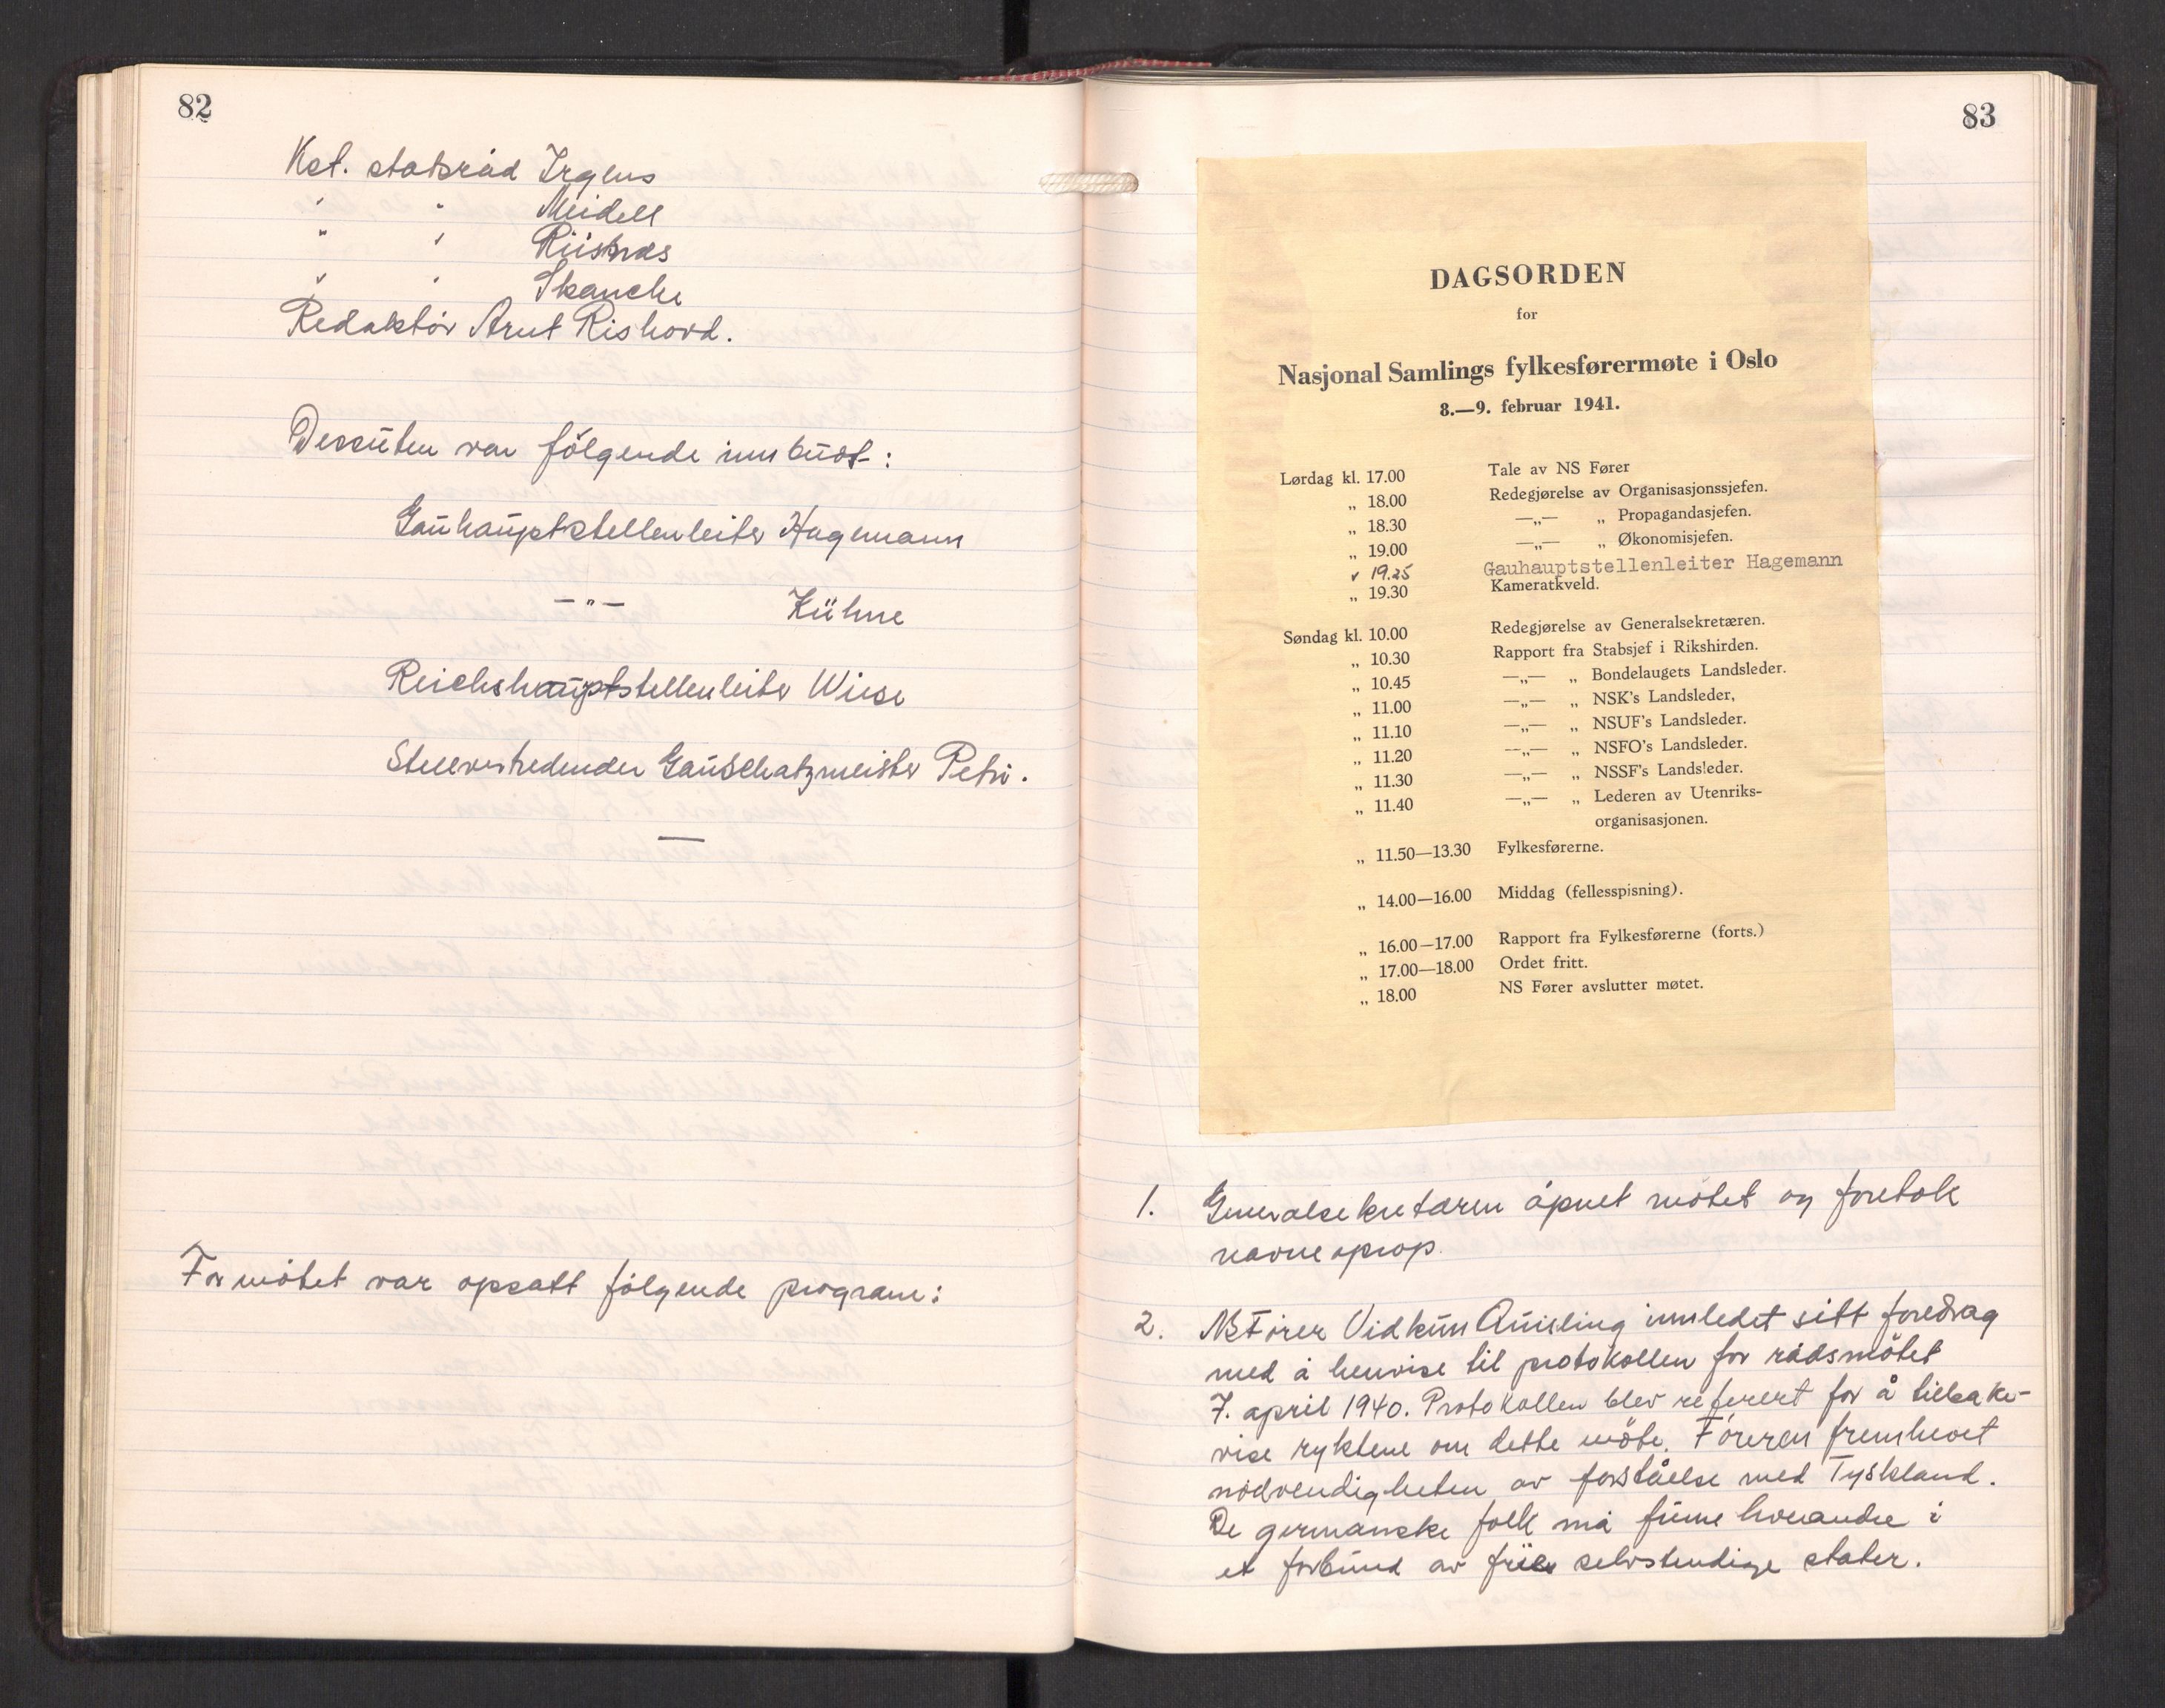 82
Kst. statsråd Irgens
" " Meidell
" " Riisnæs
" " Skancke
Redaktör Arnt Rishovd.
Dessuten var fölgende innbudt:
Gauhauptstellenleiter Hagemann
—"— Kühne
Reichshauptstellenleiter Wiese
Stellvertredender Gauschatzmeister Petri.
—
For mötet var opsatt fölgende program:
83
DAGSORDEN
for
Nasjonal Samlings fylkesførermøte i Oslo
8.—9. februar 1941.
Lørdag kl. 17.00 Tale av NS Fører
„ 18.00 Redegjørelse av Organisasjonssjefen.
„ 18.30 —„— „ Propagandasjefen.
„ 19.00 —„— „ Økonomisjefen.
„ 19.25 Gauhauptstellenleiter Hagemann
„ 19.30 Kameratkveld.
Søndag kl. 10.00 Redegjørelse av Generalsekretæren.
„ 10.30 Rapport fra Stabsjef i Rikshirden.
„ 10.45 —„— „ Bondelaugets Landsleder.
„ 11.00 —„— „ NSK's Landsleder,
„ 11.10 —„— „ NSUF's Landsleder.
„ 11.20 —„— „ NSFO's Landsleder.
„ 11.30 —„— „ NSSF's Landsleder.
„ 11.40 —„— „ Lederen av Utenriks-
organisasjonen.
„ 11.50—13.30 Fylkesførerne.
„ 14.00—16.00 Middag (fellesspisning).
„ 16.00—17.00 Rapport fra Fylkesførerne (forts.)
„ 17.00—18.00 Ordet fritt.
„ 18.00 NS Fører avslutter møtet.
1. Generalsekretæren åpnet mötet og foretok
navneoprop.
2. NS Förer Vidkun Quisling innledet sitt foredrag
med å henvise til protokollen for rådsmötet
7. april 1940. Protokollen blev referert for å tilbake-
vise ryktene om dette möte. Föreren fremhevet
nödvendigheten av forståelse med Tyskland.
De germanske folk må finne hverandre i
et forbund av frie selvstendige stater.